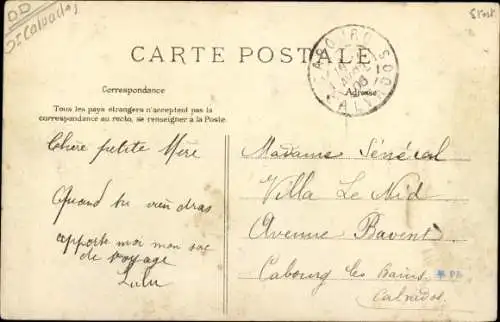 DD
Calvados
CARTE POSTALE
CABOURG
06
CALVADOS
Correspondance
Adresse
Tous les pays étrangers n'acceptent pas la
correspondance au recto, se renseigner à la Poste.
Chère petite Mère
Quand tu viendras
apporte moi mon sac
de voyage
Lulu
Madame Sénécal
Villa Le Nid
Avenue Bavent
Cabourg les Bains
Calvados